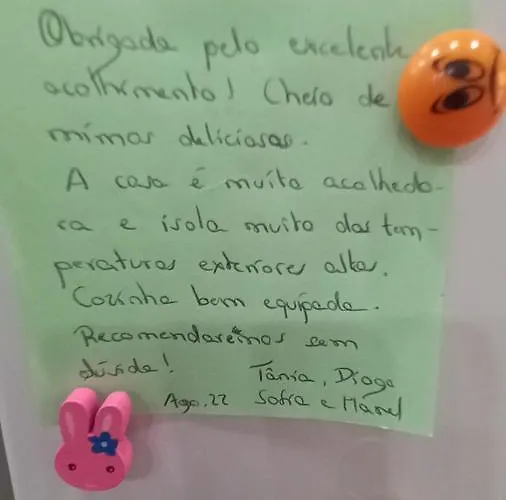 Obrigada pelo excelente
acolhimento! Cheio de
mimos deliciosos.
A casa é muito acolhedo-
ra e isola muito das tem-
peraturas exteriores altas.
Cozinha bem equipada.
Recomendaremos sem
dúvida!
Tânia, Diogo
Ago.22 Sofia e Manel